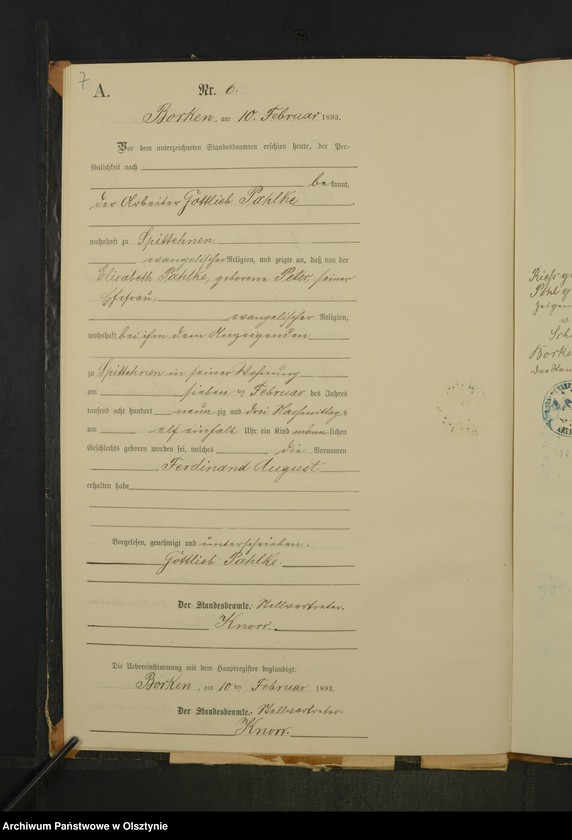 7
A.
Nr. 6.
Borken, am 10. Februar 1893.
Vor dem unterzeichneten Standesbeamten erschien heute, der Per-
sönlichkeit nach
be kannt,
der Arbeiter Gottlieb Pahlke
wohnhaft zu Spittehnen
evangelischer Religion, und zeigte an, daß von der
Elisabeth Pahlke, geborene Peter, seiner
Ehefrau,
evangelischer Religion,
wohnhaft bei ihm dem Anzeigenden
zu Spittehnen in seiner Wohnung
am sieben ten Februar des Jahres
tausend acht hundert neun zig und drei Nachmittags
um elf einhalb Uhr ein Kind männ lichen
Geschlechts geboren worden sei, welches die Vornamen
Ferdinand August
erhalten habe
Vorgelesen, genehmigt und unterschrieben.
Gottlieb Pahlke.
Der Standesbeamte. Stellvertreter.
Knorr.
Die Uebereinstimmung mit dem Hauptregister beglaubigt.
Borken, am 10 ten Februar 1893.
Der Standesbeamte. Stellvertreter
Knorr.
Archiwum Państwowe w Olsztynie